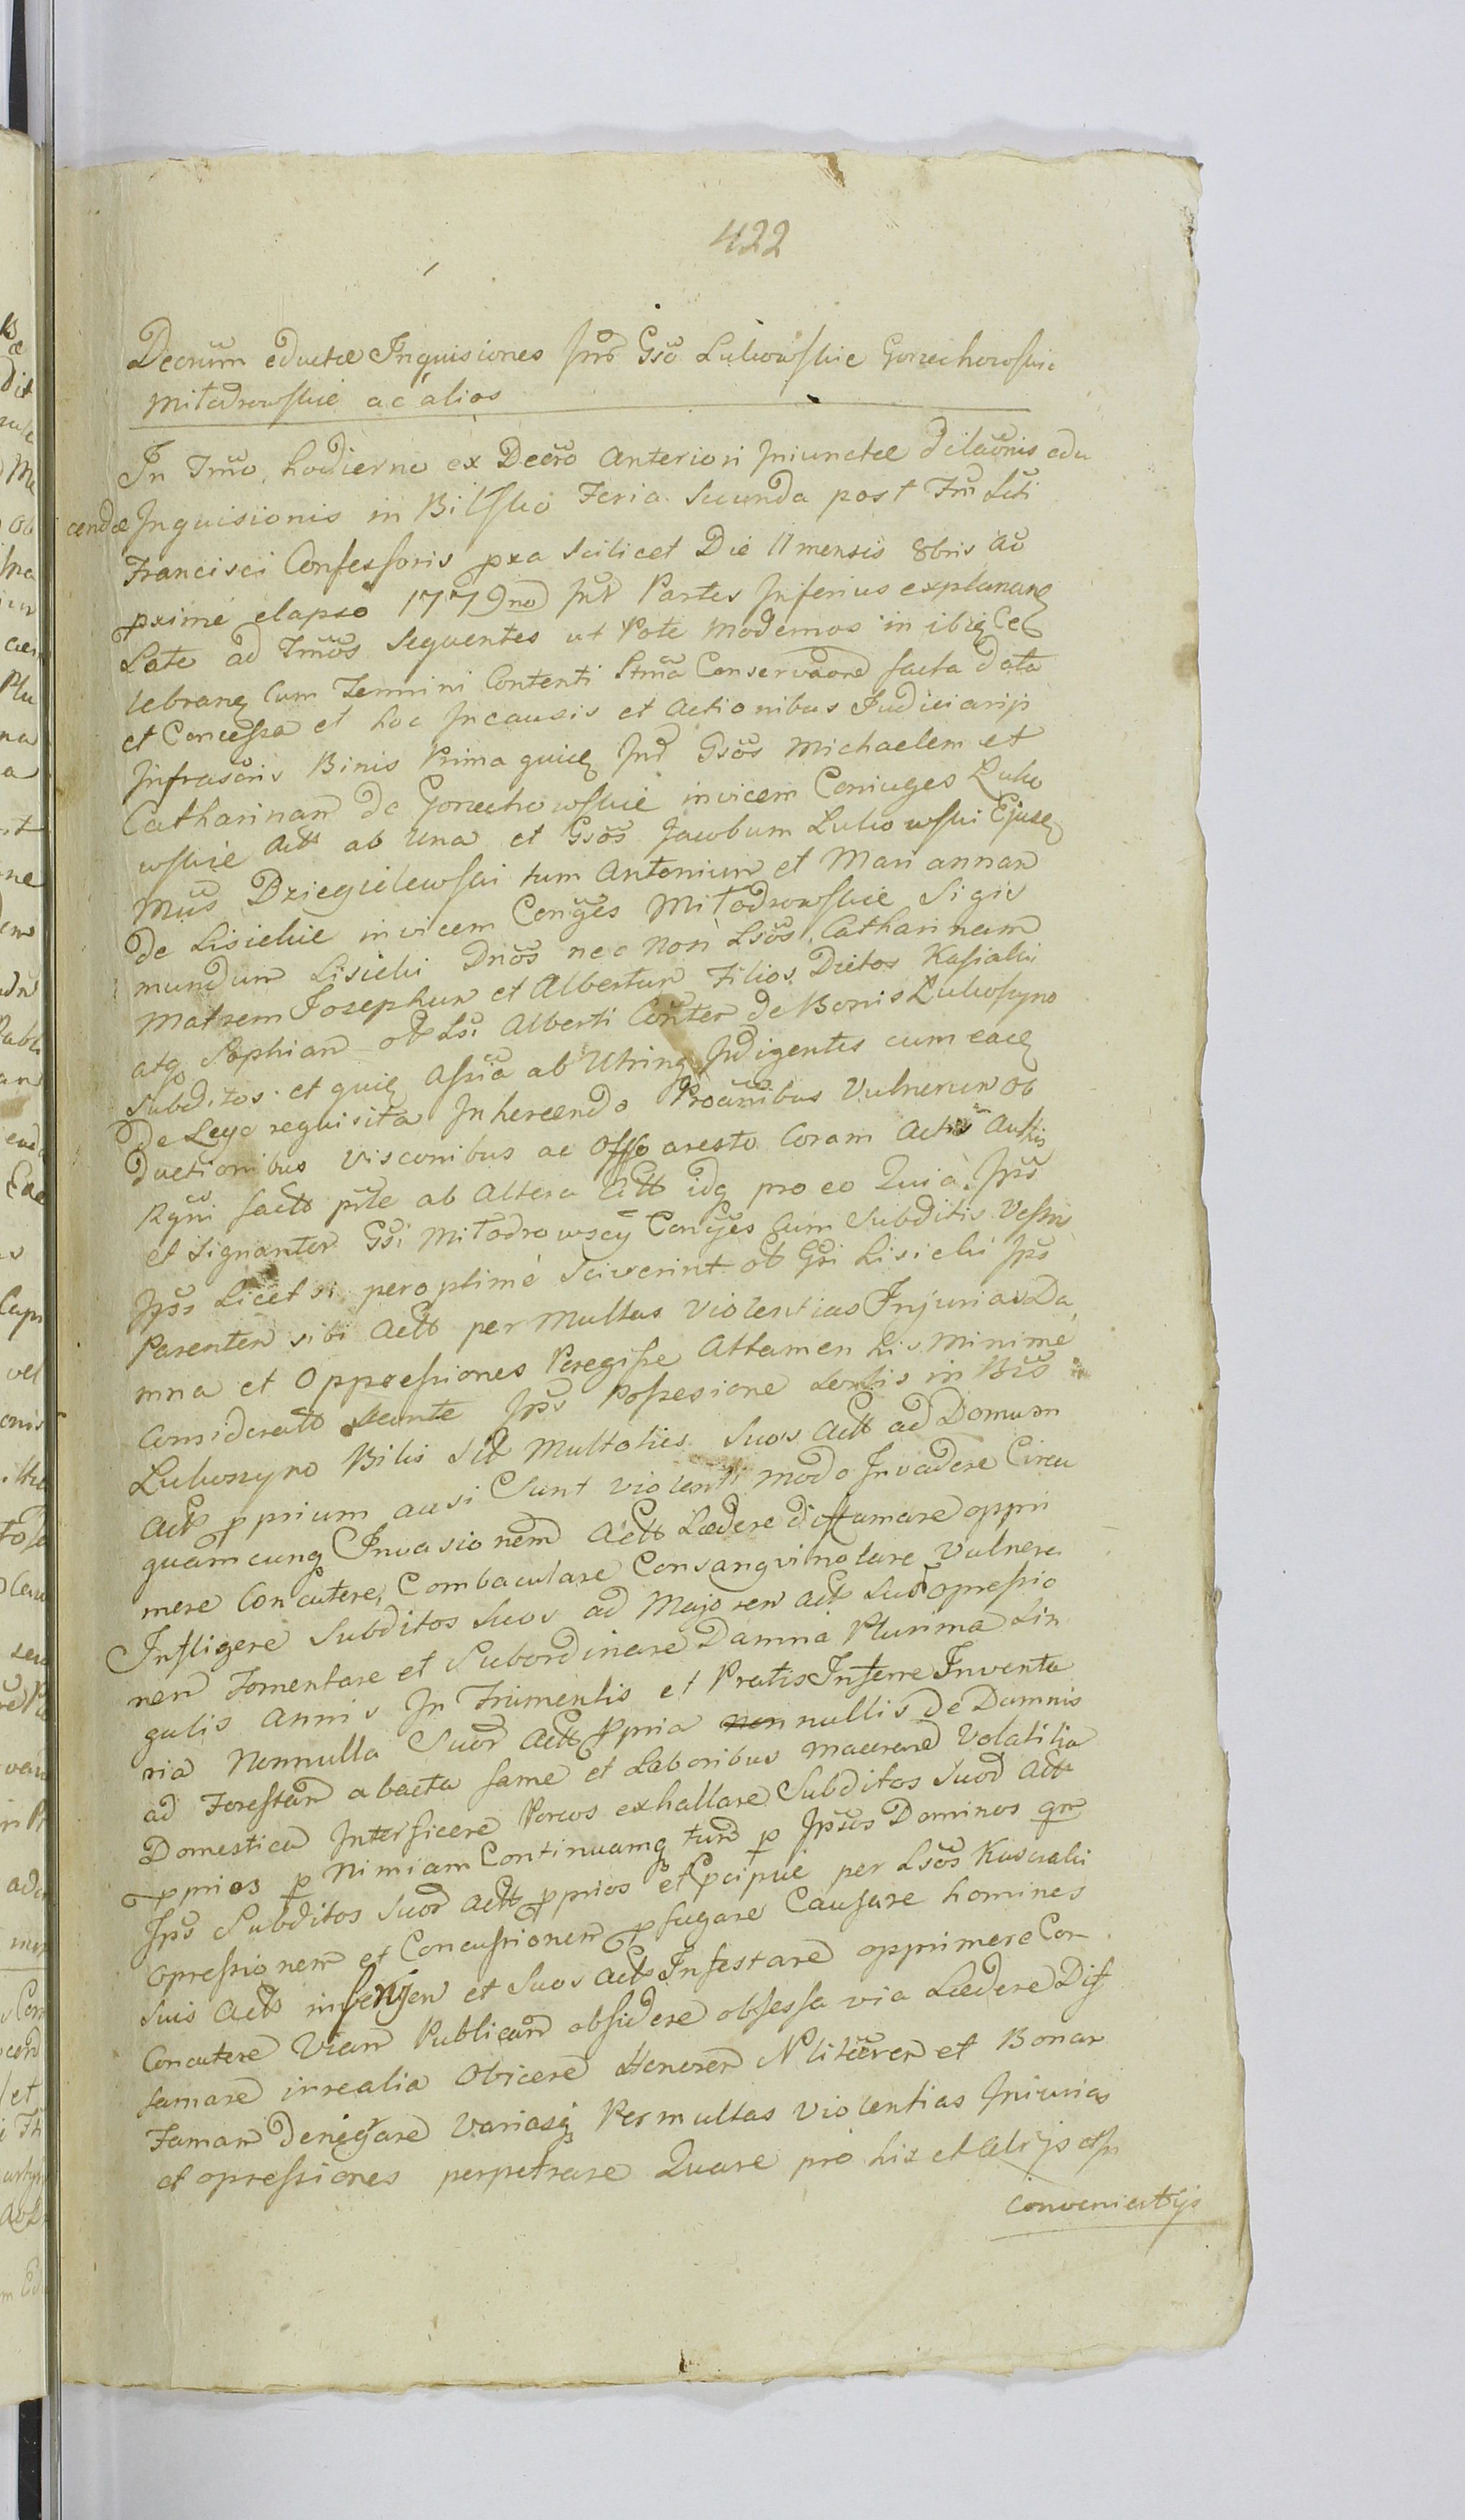 422
Decrūm eductæ Inquisiones Intr Gsō Lukowskie Gorzechowskie
Mitodrowskie ac alios
In Tm̄o hodierno ex Decr̄o Anteriori Iniunctæ dilaōnis edu
cendæ Inquisionis in Bilsko Feria Secunda post Fm̄ Scti
Francisci Confessoris pxa Scilicet Die 11 mensis 8bris Ao
pxime elapso 1779no Intr Partes Inferius explanan
Late ad Tm̄os Sequentes ut Pote Modernos in ibiq Ce
lebranq Cum Termini Contenti Conservaōne facta data
et Concessa et hoc In causis et Actionibus Iudiciarijs
Infrascris Binis Prima quieq Intr Gsōs Michaelem et
Catharinam de Gorzechowskie invicem Coniuges Luko
wskie Actt ab Una et Gsōs Jacobum Lukowski Ejusq
Mūs Dziegielewski tum Antonium et Mariannam
de Lisickie invicem Conges Mitodrowskie Sigis
mundum Lisicki Dnōs nec Non Lsōs Catharinam
Matrem Josephum et Albertum Filios Dictos Kasialki
atq Sophiam Lsi Alberti Conter de Bonis Lukoszyno
Subditos et quieq ab Utrinq Indigentes cum eaq
De Lege requisita Inhercendo Vulnerum Ob
ductionibus Visconibus ac Offo aresto Coram Actis
Rgni factt ab Altera Citt idq pro eo Quia Ipsi
et Signanter Gsi Mitodrowscy Conges Cum Subditis Vestris
Ipsis Licet si peroptime Sciverint Gsi Lisicki Ips
Parentem sibi Actt per Multas Violentias Injurias Da
mna et Oppressiones Peregisse Attamen his Minime
Consideratt Stante Ips Possesione Sortis in Bis
Lukoszyno Bilis Multoties Suos Actt ad Domum
Actt pprium ausi Sunt violenti modo Invadere Circa
quamcunq Invasionem Actt Lædere diffamare oppri
mere Concutere, Combaculare Consangvinolare Vulnera
Infligere Subditos Suos ad Majorem Actt Suor opressio
nem Fomentare et Subordinare Damna Plurima Sin
gulis Annis In Frumentis et Pratis Inferre Inventa
ria Nonnulla Suor Actt ppria non nullis De Damnis
ad Forestam abacta fame et Laboribus macerare Volatilia
Domestica Interficere Porcos exhallare Subditos Suor Actt
pprios p Nimiam Continuamq tum p Ipsos Dominos qm
Ips Subditos Suor Actt pprios et Pcipue per Lsōs Kascialki
opressionem et Concussionem pfugare Causare homines
Suis Actt et Suos Actt Infestare opprimere Con
Concutere Viam Publicam obsidere obsessa via Lædere Dif
famare irrealia Obicere Honorem Nlitærem et Bonam
Famam denigrare Variasq Permultas Violentias Iniurias
et opressiones perpetrare Quare pro his et Alijs
convenientijs